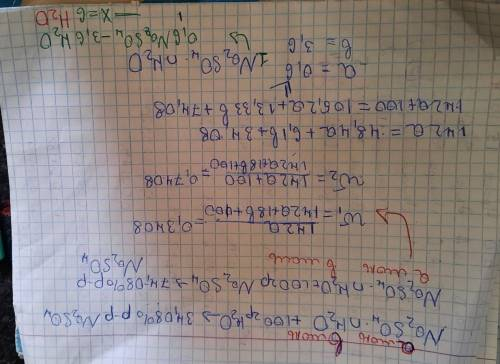 a моль в моль
Na₂SO₄·nH₂O +100г H₂O → 34,08% р-р Na₂SO₄
Na₂SO₄·nH₂O+100г Na₂SO₄ → 74,08% р-р
Na₂SO₄
a моль в моль
W₁ = 142a / 142a+18в+100 = 0,3408
W₂ = 142a+100 / 142a+18в+100 = 0,7408
142a = 48,4a + 6,1в + 34,08
142a+100 = 105,2a + 13,33в + 74,08
a = 0,6
в = 3,6
1Na₂SO₄ nH₂O
0,6Na₂SO₄ - 3,6H₂O
1 — x=6
H₂O